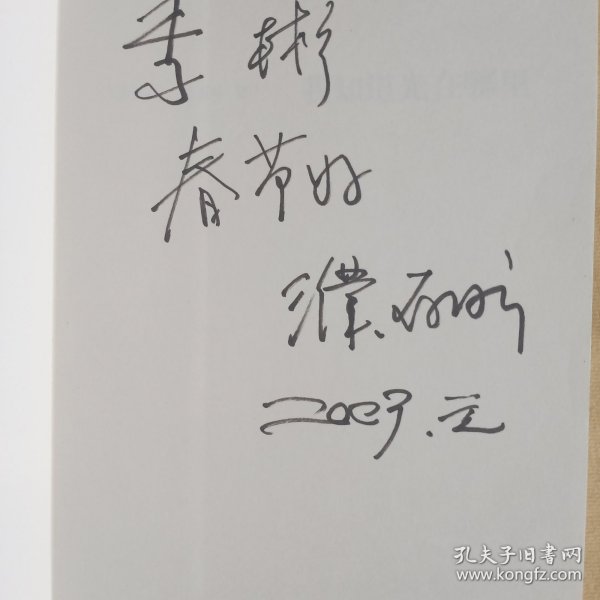 李彬
春节好
濮存昕
2003.元
孔夫子旧书网
www.kongfz.com